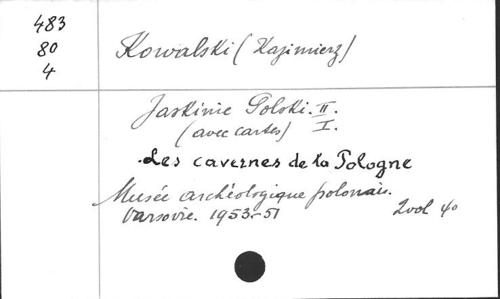 483
80
4
Kowalski (Kazimierz)
Jaskinie Polski. II.
(avec cartes) I.
Les cavernes de la Pologne
Musée archéologique polonais.
Varsovie. 1953-51
2 vol 4o